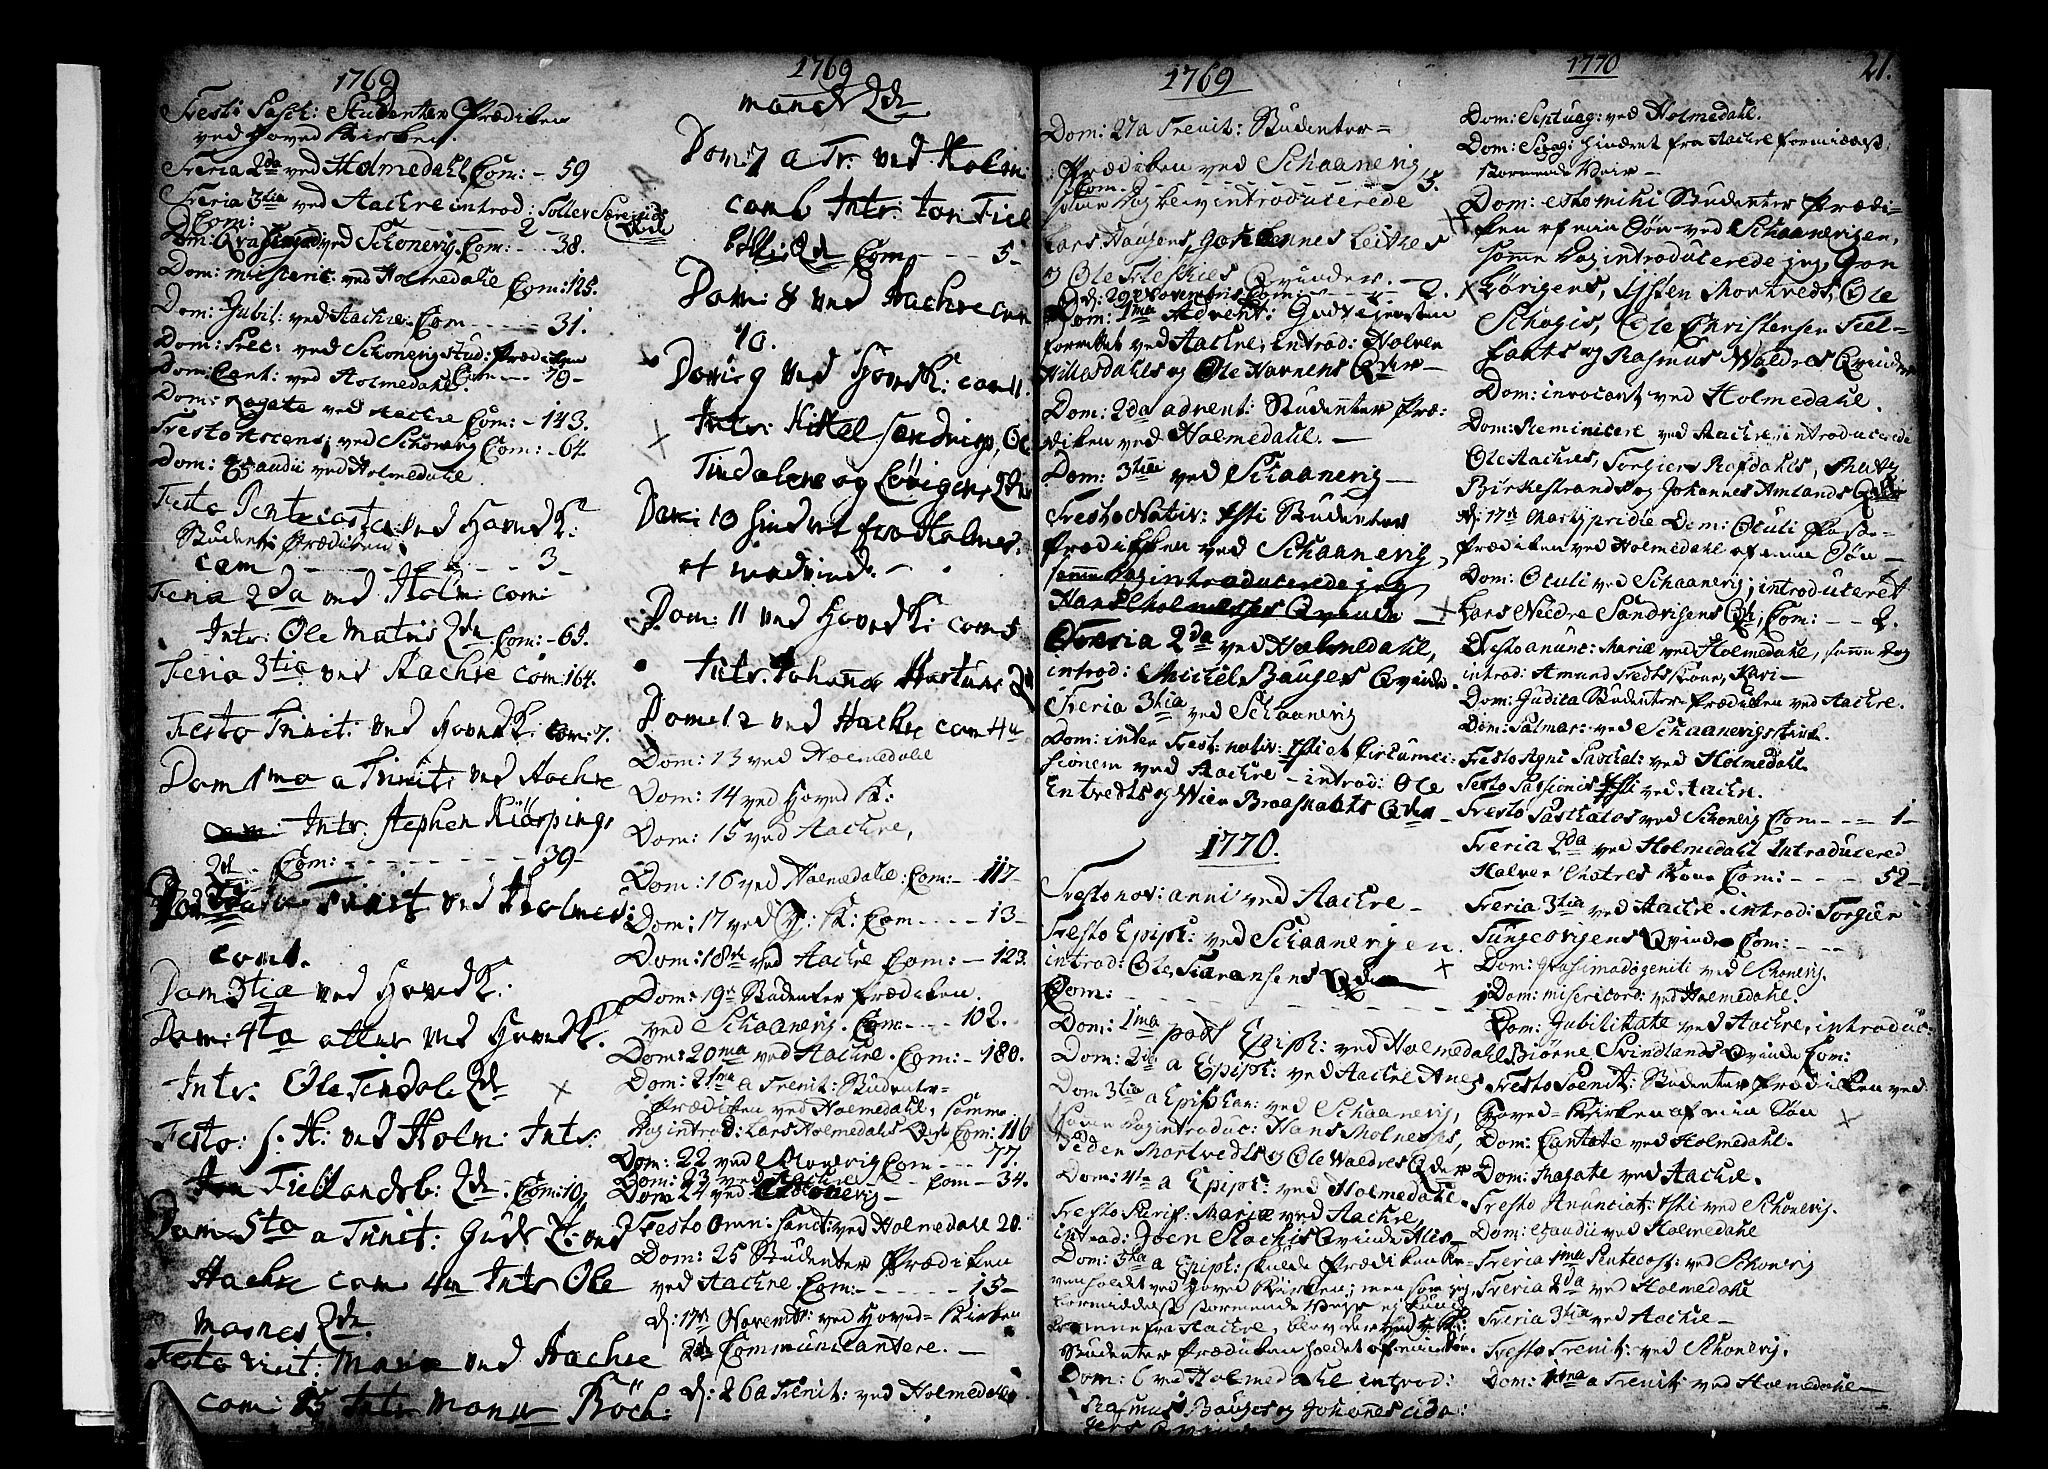 1769
Festo Pasch: Studenter Prædiken
ved Hoved Kirken.
Feria 2da ved Holmedahl Com: - 59
Feria 3tia ved Aachre introd: 
Com: - - - 2
Dom: ved Schonevig. Com: - - 38.
Dom: miseric: ved Holmedahl Com: 125.
Dom: Jubil: ved Aachre. Com - - - 31.
Dom: ved Schonevig stud: Prædiken
Com - - 79 -
Dom: Cant: ved Holmedahl.
Dom: Rogate ved Aachre Com: - 143.
Festo Ascens: ved Schonevig Com: - 64
Dom: Exaudii ved Holmedahl.
Festo Pentecosta ved Hoved K:
Studenter Prædiken
com - - - - - 3 -
Feria 2da ved Holm: com:
Intr: Ole Matris Qde Com: - 65.
Feria 3tia ved Aachre com: 164.
Festo Trinit: ved Hoved K: com: 7.
Dom 1ma a Trinit: ved Aachre
Intr: Stephen Kiörpings
Qde Com: - - - - - 39 -
Trinit ved Holmed:
com 1.
Dom 3tia ved Hoved K:
Dom: 4ta atter ved Hoved K.
Intr: Ole Tindals Qde ×
Festo: S. H: ved Holm: Intr:
Jon Fiellandsb: Qde Com: 10
Dom 5ta a Trinit: Guds T: ved
Aachre com 4 Intr Ole
Masnes Qde.
Festo visit: Mariæ ved Aachre
com: 15 Intr Mons Röch:
1769
Mands Qde
Dom 7 a Tr: ved Holm:
com 6 Intr: Jon Fiel
Qde Com - - - 5 -
Dom: 8 ved Aachre com
10.
Dom: 9 ved Hoved K: com 11.
× Intr: Sandvigs, Ole
Tindalens og Qde
Dom: 10 hindret fra Holmed:
af modvind. -
Dom: 11 ved Hoved K: com 5
Intr. Johannes Qde
Dom 12 ved Aachre com 44
Dom: 13 ved Holmedahl
Dom: 14 ved Hoved K:
Dom: 15 ved Aachre,
Dom: 16 ved Holmedahl: Com: - 117 -
Dom: 17 ved H: K: Com - - - 13 -
Dom: 18de ved Aachre Com: - 123.
Dom: 19de Studenter Prædiken.
ved Schaanevig. Com: - - - 102.
Dom: 20ma ved Aachre. Com: - 180.
Dom: 21ma a Trenit: Studenter
Prædiken ved Holmedahl, samme
Dag introd: Lars Holmedahls Qde Com: 116
Dom: 22 ved Schonevig Com - - - 77.
Dom: 23 ved Aachre - - Com - 34.
Dom 24 ved Schonevig -
Festo Omn: Sanct: ved Holmedahl 20.
Dom: 25 Studenter Prædiken
ved Aachre Com: - - - - 15 -
d: 17de Novembr: ved Hoved-Kirken
Communicantere. -
d: 26 a Trenit: ved Holmedahl
1769
Dom: 27a Trenit: Studenter=
Prædiken ved Schaanevig
Com: - - - 5.
samme Dag blev introducerede
Lars Haugens, Johannes Leiknes
og Ole Qvinder. -
d: 29 Novembris Com: - - - 2.
Dom: 1ma Advent: Gudstjenesten
forrettet ved Aachre, introd: Halvor
Millesdahls og Ole Havnens Qder -
Dom: 2da advent: Studenter Præ=
diken ved Holmedahl. -
Dom: 3tia ved Schaanevig -
Festo Nativ: Xsti Studenter
Prædikken ved Schaanevig,
samme Dag introducerede jeg
Hans Qvinde
Feria 2da ved Holmedahl,
introd: Michel Bauges Qvinde
Feria 3tia ved Schaanevig
Dom: inter Fest: nativ: Xsti et Circumci=
sionem ved Aachre - introd: Ole
Entvedts og Wier Qder -
1770.
Festo nov: anni ved Aachre -
Festo Epiph: ved Schaanevigen.
introd: Ole Siøvansens Qde ×
Dom: - - - - -
Dom: 1ma post Epiph: ved Holmedahl
Dom: 2da a Epiph: ved Aachre
Dom 3tia a Epiphan: ved Schaanevig,
samme Dag introduc: Hans Molnesses,
Peder Mortvedts og Ole Waldres Qder
Dom: 4ta a Epiph: ved Holmedahl.
Festo Purif: Mariæ ved Aachre,
introd: Joen Qvinde
Dom: 5ta a Epiph: skulde Prædikken
holdet ved Hoved Kirken; men som jeg
formedelst stormende Veyr ej kunde
komme fra Aachre, blev der ved H: K:
Studenter Prædiken holdet af min Søn.
Dom: 6 ved Holmedahl introd:
Rasmus Bauges og Johannes
1770
21.
Dom: Septuag: ved Holmedahl.
Dom: Sexag: hindret fra Aachre formedelst
stormende Veir -
Dom: estomihi Studenter Prædi=
ken af min Søn ved Schaanevigen,
samme Dag introducerede jeg, Jon
× Mortveds, Ole
Ole Christensen Fiel=
og Rasmus Waldres Qvinder
Dom: invocavit ved Holmedahl.
Dom: Reminicere ved Aachre, introducerede
Ole Aachres, Torgiers Rafdahls,
Birkestrands og Johannes Amlands Qder
d: 17de Marty pridie Dom: Oculi
Prædiken ved Holmedahl af min Søn -
Dom: Oculi ved Schaanevig, introduceret
× Lars Nedre Sandvigens Qde, Com: - - 2.
Festo anunc: Mariæ ved Holmedahl, samme Dag
introd: Amund Kone, Kari -
Dom: Judica Studenter Prædiken ved Aachre.
Dom: Palmar: ved Schaanevigs Kirk.
Festo Agni Paschal: ved Holmedahl.
Festo Passionis Xsti ved Aachre.
Festo Paschatos ved Schonevig Com - - - 1 -
Feria 2da ved Holmedahl Introducered
Halvor Kone Com: - - - 52 -
Feria 3tia ved Aachre. introd: Torgier
Tungesvigens Qvinde Com: - - -
Dom: Qvasimodogeniti ved Schonevig.
Dom: misericord: ved Holmedahl.
Dom: Jubilitate ved Aachre, introduc:
Biørne Svindlands Qvinde Com:
Studenter Prædikken ved
Hoved-Kirken af min Søn ×
Dom: Cantate ved Holmedahl.
Dom: Rogate ved Aachre.
Festo Xsti ved Schonevig.
Dom: Exaudii ved Holmedahl
Feria 1ma Pentecost: ved Schonevig
Feria 2da ved Holmedahl
Feria 3tia ved Aachre -
Festo Trenit: ved Schonevig.
Dom: 1ma a Trenit: ved Holmedahl -